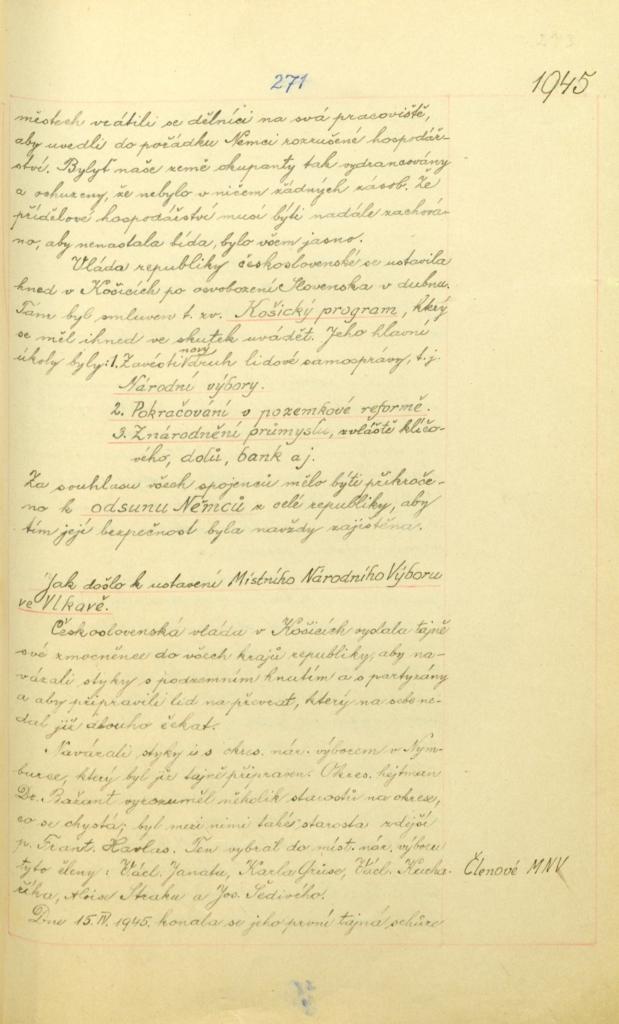 271
1945
městech vrátili se dělníci na svá pracoviště,
aby uvedli do pořádku Němci rozrušené hospodář-
ství. Bylyť naše země okupanty tak vydrancovány
a ochuzeny, že nebylo v ničem žádných zásob. Že
přídělové hospodářství musí býti nadále zachová-
no, aby nenastala bída, bylo všem jasno.
Vláda republiky československé se ustavila
hned v Košicích po osvobození Slovenska v dubnu.
Tam byl smluven t. zv. Košický program, který
se měl ihned ve skutek uvádět. Jeho hlavní
úkoly byly: 1. Zavésti nový druh lidové samosprávy, t. j.
Národní výbory.
2. Pokračování v pozemkové reformě.
3. Znárodnění průmyslu, zvláště klíčo-
vého, dolů, bank a j.
Za souhlasu všech spojenců mělo býti přikroče-
no k odsunu Němců z celé republiky, aby
tím její bezpečnost byla navždy zajištěna.
Jak došlo k ustavení Místního Národního Výboru
ve Vlkavě.
Československá vláda v Košicích vyslala tajně
své zmocněnce do všech krajů republiky, aby na-
vázali styky s podzemním hnutím a s partyzány
a aby připravili lid na převrat, který na sebe ne-
dal již dlouho čekat.
Navázali styky i s okres. nár. výborem v Nym-
burce, který byl již tajně připraven. Okres. hejtman
Dr. Bažant vyrozuměl několik starostů na okrese,
co se chystá; byl mezi nimi také starosta zdejší
p. Frant. Havlas. Ten vybral do míst. nár. výboru
tyto členy: Václ. Janatu, Karla Gruse, Václ. Kucha-
říka, Aloise Straku a Jos. Šedivého.
Členové MNV
Dne 15. IV. 1945. konala se jeho první tajná schůze